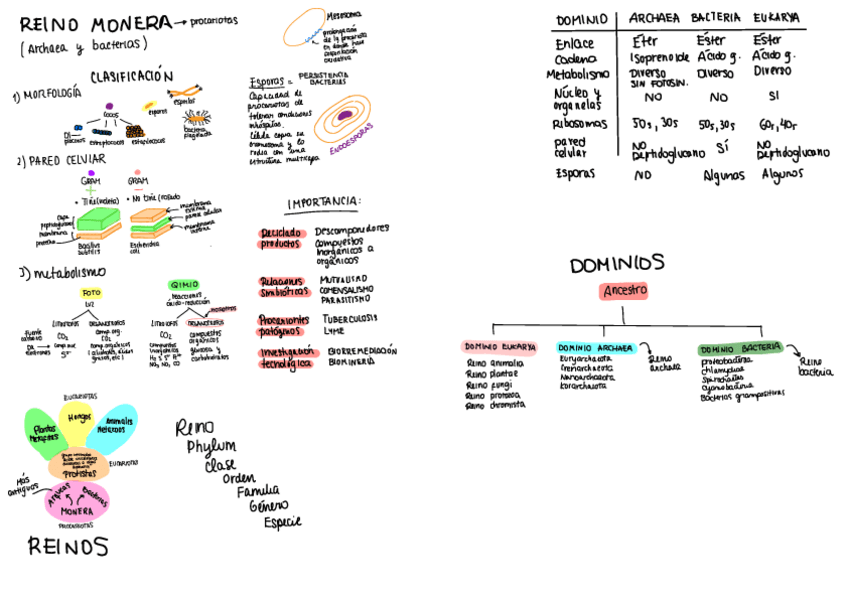 REINO MONERA → procariotas
(Archaea y bacterias)
CLASIFICACIÓN
1) MORFOLOGÍA
COCOS
espirilos
estreptococos
estafilococos
2) PARED CELULAR
GRAM +
• Tiñe (violeta)
GRAM −
• No tiñe (rosado
membrana externa
pared celular
membrana interna
Escherichia coli
3) metabolismo
FOTO
LUZ
LITOTROFOS
CO₂
ORGANOTROFOS
QIMIO
reacciones
óxido-reducción
LITOTROFOS
CO₂
ORGANOTROFOS
compuestos
orgánicos
glucosa y
carbohidratos
Mesosoma
prolongación
de la
en donde hace
oxidativa
Esporas = PERSISTENCIA BACTERIAS
Capacidad de
procariotas de
tolerar condiciones
inhóspitas.
Célula copia su
cromosoma y lo
rodea con una
estructura multicapa
ENDOESPORAS
IMPORTANCIA:
Reciclado productos
Descomponedores
compuestos
inorgánicos a
orgánicos
Relaciones simbióticas
MUTUALISMO
COMENSALISMO
PARASITISMO
Procariontes patógenos
TUBERCULOSIS
LYME
Investigación tecnológica
BIORREMEDIACIÓN
BIOMINERIA
EUCARIOTAS
Plantas
Metafitas
Hongos
Animales
Metazoos
EUCARIOTA
Protistas
Más antiguos
Arqueas
Bacterias
MONERA
PROCARIOTAS
REINOS
Reino
Phylum
Clase
Orden
Familia
Género
Especie
DOMINIO ARCHAEA BACTERIA EUKARYA
Enlace Éter Éster Éster
Cadena Isoprenoide Ácido g. Ácido g.
Metabolismo Diverso SIN FOTOSIN. Diverso Diverso
Núcleo y organelas NO NO SI
Ribosomas 50s, 30s 50s, 30s 60r, 40r
pared celular NO peptidoglucano SÍ NO peptidoglucano
Esporas NO Algunos Algunos
DOMINIOS
Ancestro
DOMINIO EUKARYA
Reino animalia
Reino plantae
Reino fungi
Reino protozoa
Reino chromista
DOMINIO ARCHAEA
Euryarchaeota
Crenarchaeota
Nanoarchaeota
Korarchaeota
Reino archaea
DOMINIO BACTERIA
proteobacteria
chlamydiae
Spirochaetes
cyanobacteria
Bacterias grampositivas
Reino bacteria